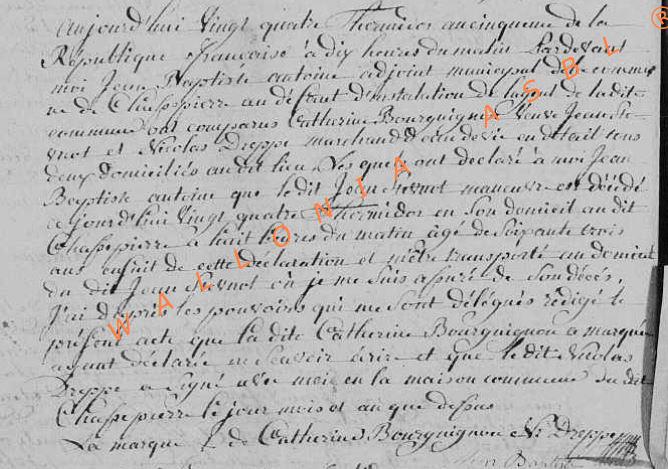 Aujourd'hui vingt quatre Thermidor an cinquieme de la
République française à dix heures du matin Pardevant
moi Jean Baptiste antoine adjoint municipal de la commu
ne de Chassepierre au défaut d'installation de l'agent de la dite
commune ont comparus Catherine Bourguignon veuve Jean
et Nicolas Dreppe marchand d'eau de vie en détail tous
deux domiciliés audit lieu Lesquels ont déclaré à moi Jean
Baptiste antoine que ledit Jean manœuvre est décédé
ce jourd'hui vingt quatre Thermidor en son domicil au dit
Chassepierre à huit heures du matin âgé de soixante trois
ans ensuit de cette déclaration et m'être transporté au domicil
du dit Jean où je me suis assuré de son décés,
J'ai d'après les pouvoirs qui me sont délégués rédigé le
présent acte que la dite Catherine Bourguignon a marqué
ayant déclaré ne savoir écrire et que ledit Nicolas
Dreppe a signé avec moi en la maison commune du dit
Chassepierre le jour mois et an que dessus
La marque de Catherine Bourguignon Ns Dreppe
WALLONIA ASBL ®